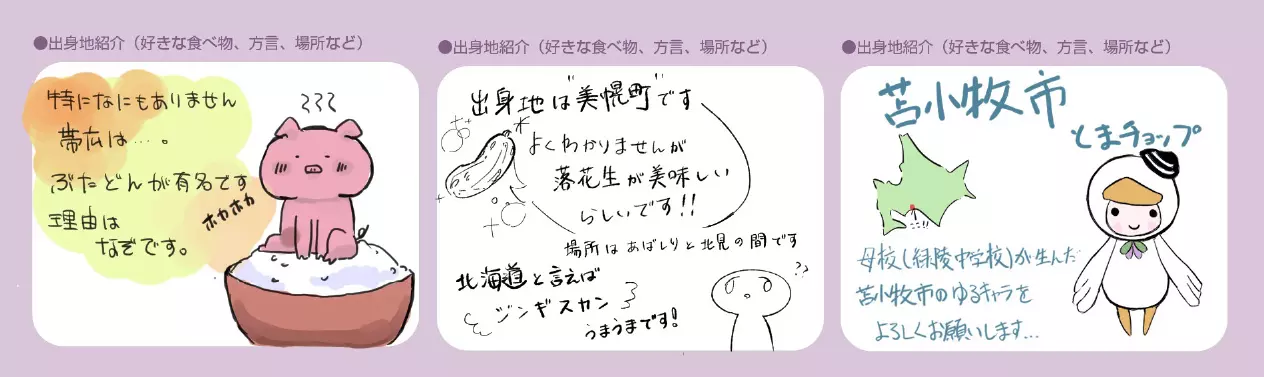 ●出身地紹介（好きな食べ物、方言、場所など）
特になにもありません
帯広は…。
ぶたどんが有名です
理由は
なぞです。
ホカホカ
●出身地紹介（好きな食べ物、方言、場所など）
出身地は"美幌町"です
よくわかりませんが
落花生が美味しい
らしいです!!
場所はあばしりと北見の間です
北海道と言えば
ジンギスカン
うまうまです!
??
●出身地紹介（好きな食べ物、方言、場所など）
苫小牧市
とまチョップ
母校(緑陵中学校)が生んだ
苫小牧市のゆるキャラを
よろしくお願いします…